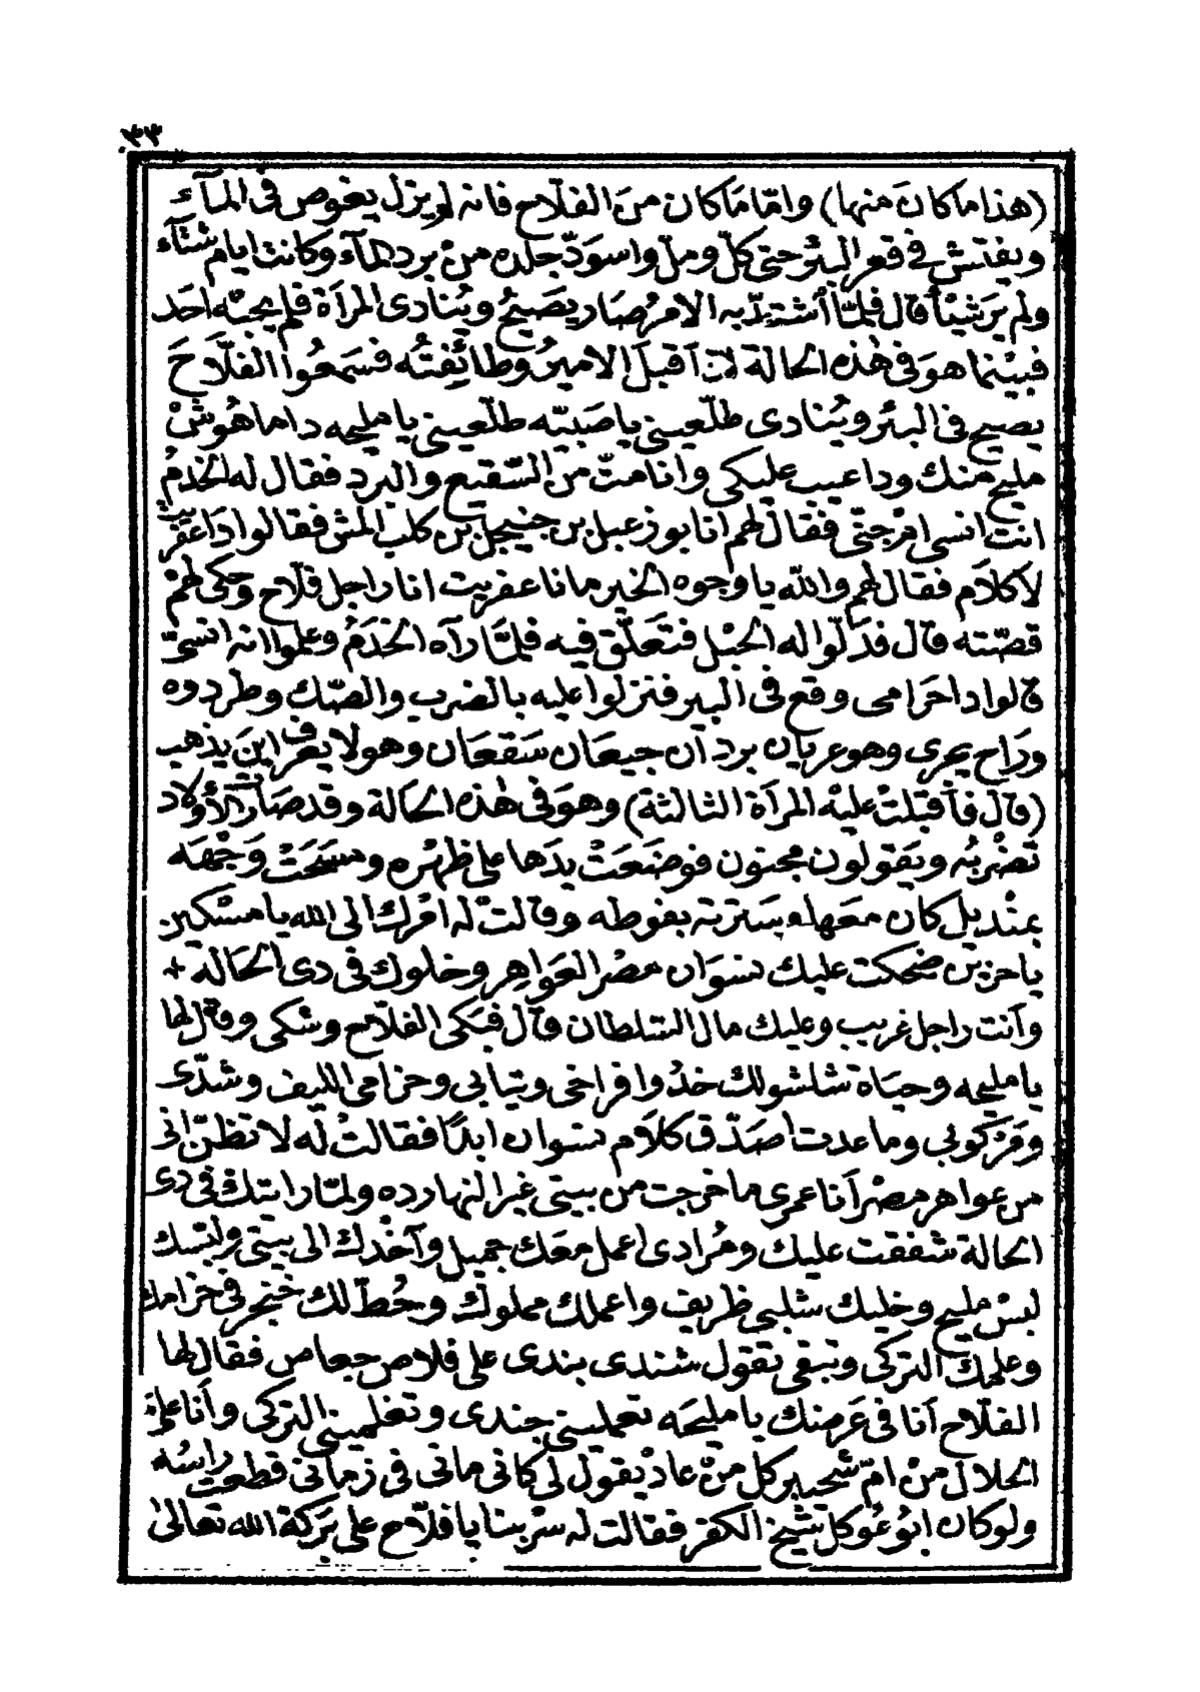 ٣٣
(هذا ما كان منها) وامّا ما كان من الفلّاح فانه لم يزل يغوص فى المآء
ويفتش فى قعر البئر حتى كلّ وملّ واسودّ جلده من برد المآء وكانت ايام شتآء
ولم يَرَ شيئاً قال فلمّا اشتدّ به الامرُ صار يَصيحُ ويُنادى المرأة فلم يجبْه احَد
فبيْنما هوَ فى هٰذه الحالة اذ اقبلَ الاميرُ وطائِفتُه فسَمعُوا الفلّاحَ
يصيح فى البئر ويُنادى طلّعينى يا صَبيّه طلّعينى يا مليحه دا ما هُوشْ
مليح منك ودا عيب عليكى وانا متّ من السّقيع والبرد فقال له الخدمُ
انت انسى امْ جنّى فقال لهم انا بو زعبل بن جنيجل بن كلب المش فقالوا دَا عفريت
لا كلَام فقال لهم والله يا وجوه الخير مانا عفريت انا راجل فلّاح وحكى لهم
قصّته قال فدلّوا له الحبْل فتَعلّق فيه فلمّا رآه الخدَمُ وعلموا انه انسىّ
قالوا دا حَرامى وقع فى البير فنزلوا عليه بالضرب والصّك وطردوه
ورَاح يجرى وهو عريان بردآن جيعَان سَقعَان وهو لا يعرف اينَ يذهب
(قال فأقبَلتْ عليْه المرأة الثالثة) وهوَ فى هٰذه الحَالة وقد صَارَت الأوْلاد
تضْربُه ويَقولون مجنون فوضَعَتْ يدَها على ظهْره ومسَحَتْ وَجْهَه
بمنْديل كان معَها وسَترته بفوطه وقالتْ له امْرك الى الله يا مسْكين
يا حزين ضحكت عليك نسوَان مصْر العَواهِر وخلوك فى دى الحَاله +
وآنت راجل غريب وعليك مال السّلطان قال فبَكى الفلّاح وشكى وقال لها
يا مليحه وحيَاة شلشولك خدُوا فراخى وتيابى وحزامى الليف وشدّى
ومَرْكوبى وما عدت اصَدّق كلَام نسوان ابدًا فقالتْ له لا تظنّ انى
من عواهر مصْر آنا عمرى ما خرجت من بيتى غير النهارده ولمّا رايتك فى دى
الحالة شفقت عليك ومُرادى اعمل معَك جميل وآخُدك الى بيتى ولبّسك
لبسْ مليح وخليك شلبى ظريف واعملك مملوك وحُطّ لك خنجر فى حزامك
وعلمك التركى وتبقى تقول شندى بندى على فلاص جعاص فقال لها
الفلّاح آنا فى عَرضك يا مليحَه تعملينى جندى وتعَلمينى التركى وآنا علىّ
الحلال منْ امّ شحيبر كل منْ عادْ يقول لى كانى مانى فى زمآنى قطعت راسُه
ولو كان ابُو عُوكل شيخ الكفر فقالت له سرْ بنا يا فلّاح على بَركة الله تعالىٰ